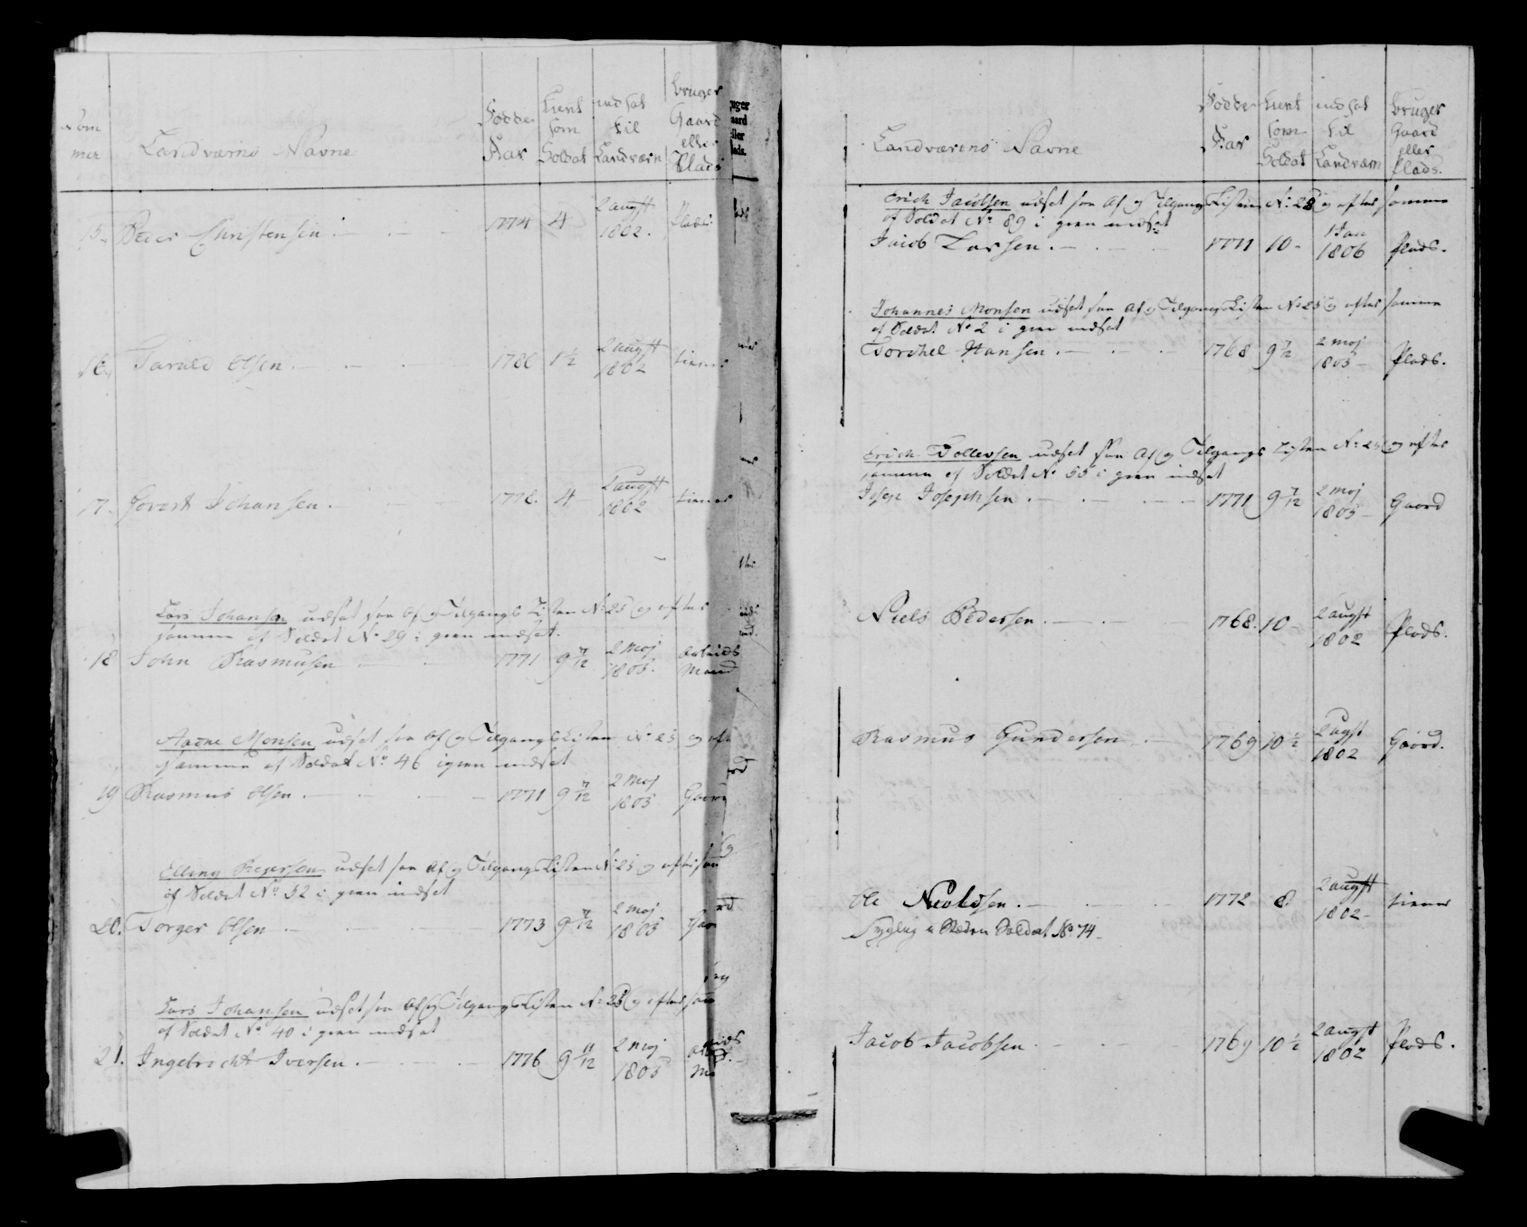 Nom
mer
Landværns Navne
Fødde
Aar
tient
som
Soldat
indsat
til
Landværn
bruger
Gaard
eller
Plads
15. Peder Christensen 1774 4 2 augst 1802. Plads
16. Tarald Olsen 1 1/2 2 augst 1802 tiener
17. Johansen 4 2 augst 1802 tiener
Lars Johansen udsat see Af og Tilgangs Listen No 25 og efter
samme af Soldat No 29 igien indsat.
18 John Rasmusen 1771 9 7/12 2 Maj 1805. Arbeids Mand
Aadne Monsen udsat see Af og Tilgangs Listen No 25 og eft
samme af Soldat No 46 igien indsat
19 Rasmus Olsen 1771 9 7/12 2 Maj 1805 Gaard
Elling Pedersen udsat see Af og Tilgangs Listen No 25 og efter sam
af Soldat No 52 igien indsat
20. Torger Olsen 1773 9 7/12 2 Maj 1805 Gaar
Lars Johansen udsat see Af og Tilgangs Listen No 25 og efter sam
af Soldat No 40 igien indsat
21. Ingebricht Iversen 1776 9 11/12 2 Maj 1805
Landværens Navne
Fødde
Aar
tient
som
Soldat
indsat
til
Landværn
bruger
Gaard
eller
Plads.
Erich Jacobsen udsat see Af og Tilgangs Listen No 28 og efter samme
af Soldat No 89 igien indsat
Jacob Larsen 1771 10 1 Jan 1806 Plads.
Johannes Monsen udsat see Af og Tilgangs Listen No 25 og efter samme
af Soldat No 2 igien indsat
Torchel Hansen 1768 9 7/12 2 Maj 1805 Plads.
Erich Tollevsen udsat see Af og Tilgangs Listen No 25 og efter
samme af Soldat No 55 igien indsat
Josep Josephsen 1771 9 7/12 2 Maj 1805 Gaard
Niels Pedersen 1768. 10 2 augst 1802 Plads.
Rasmus Gundersen 1769 10 1/2 2 augst 1802 Gaard.
Ole Neolsen 1772 8 2 augst 1802 tiener
Soldat No 74
Jacob Jacobsen 1769 10 1/2 2 augst 1802 Plads.